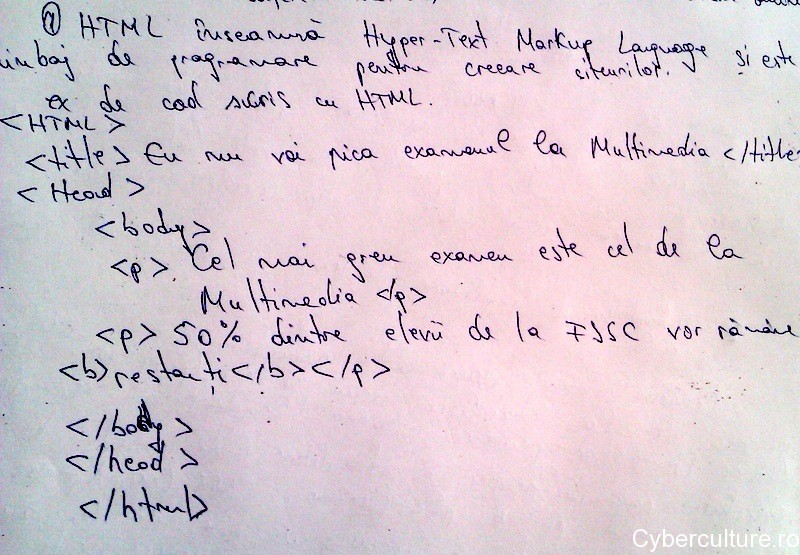 ① HTML înseamnă Hyper-Text Markup Language și este
limbaj de programare pentru creeare siteurilor.
ex de cod scris cu HTML.
<HTML>
<title> Eu nu voi pica examenul la Multimedia </title>
<Head>
<body>
<p> Cel mai greu examen este cel de la
Multimedia </p>
<p> 50% dintre elevii de la FJSC vor rămâne
<b>restanți</b></p>
</body>
</head>
</html>
Cyberculture.ro